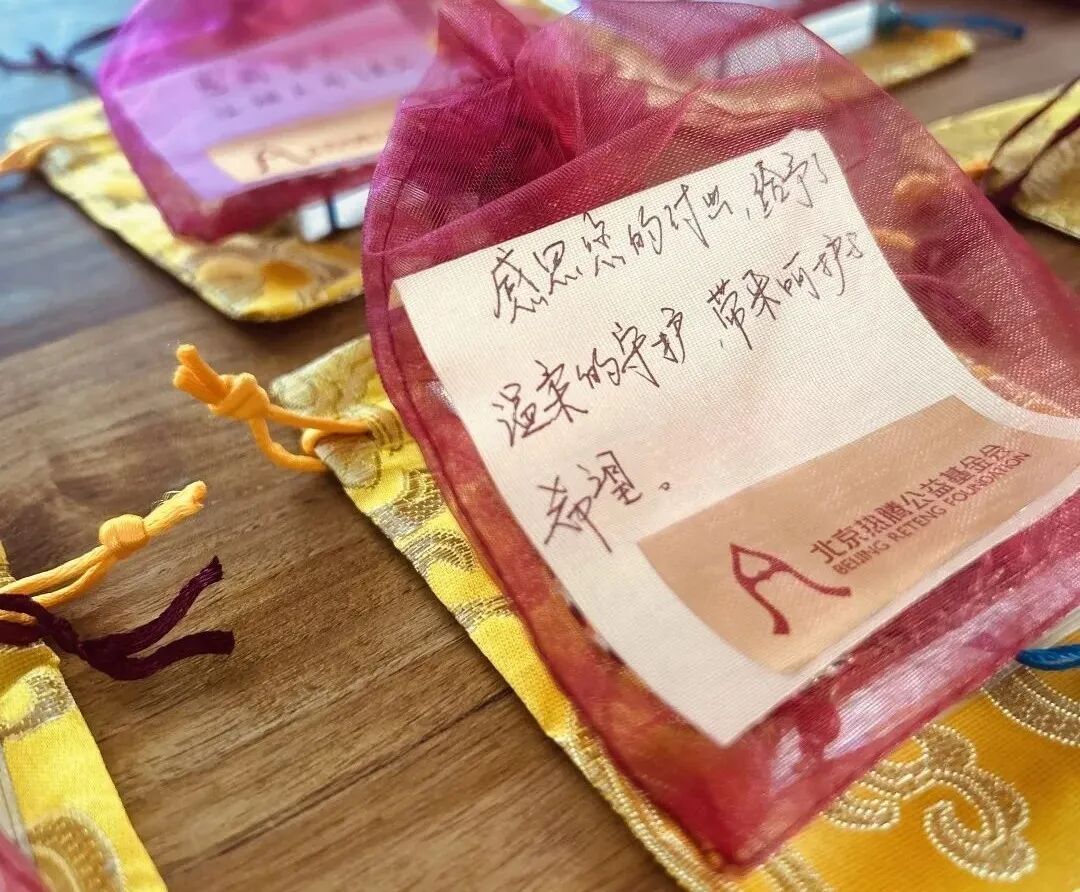 感恩您的付出,给予了
温柔的守护,带来呵护与
希望。
北京热腾公益基金会
BEIJING RETENG FOUNDATION